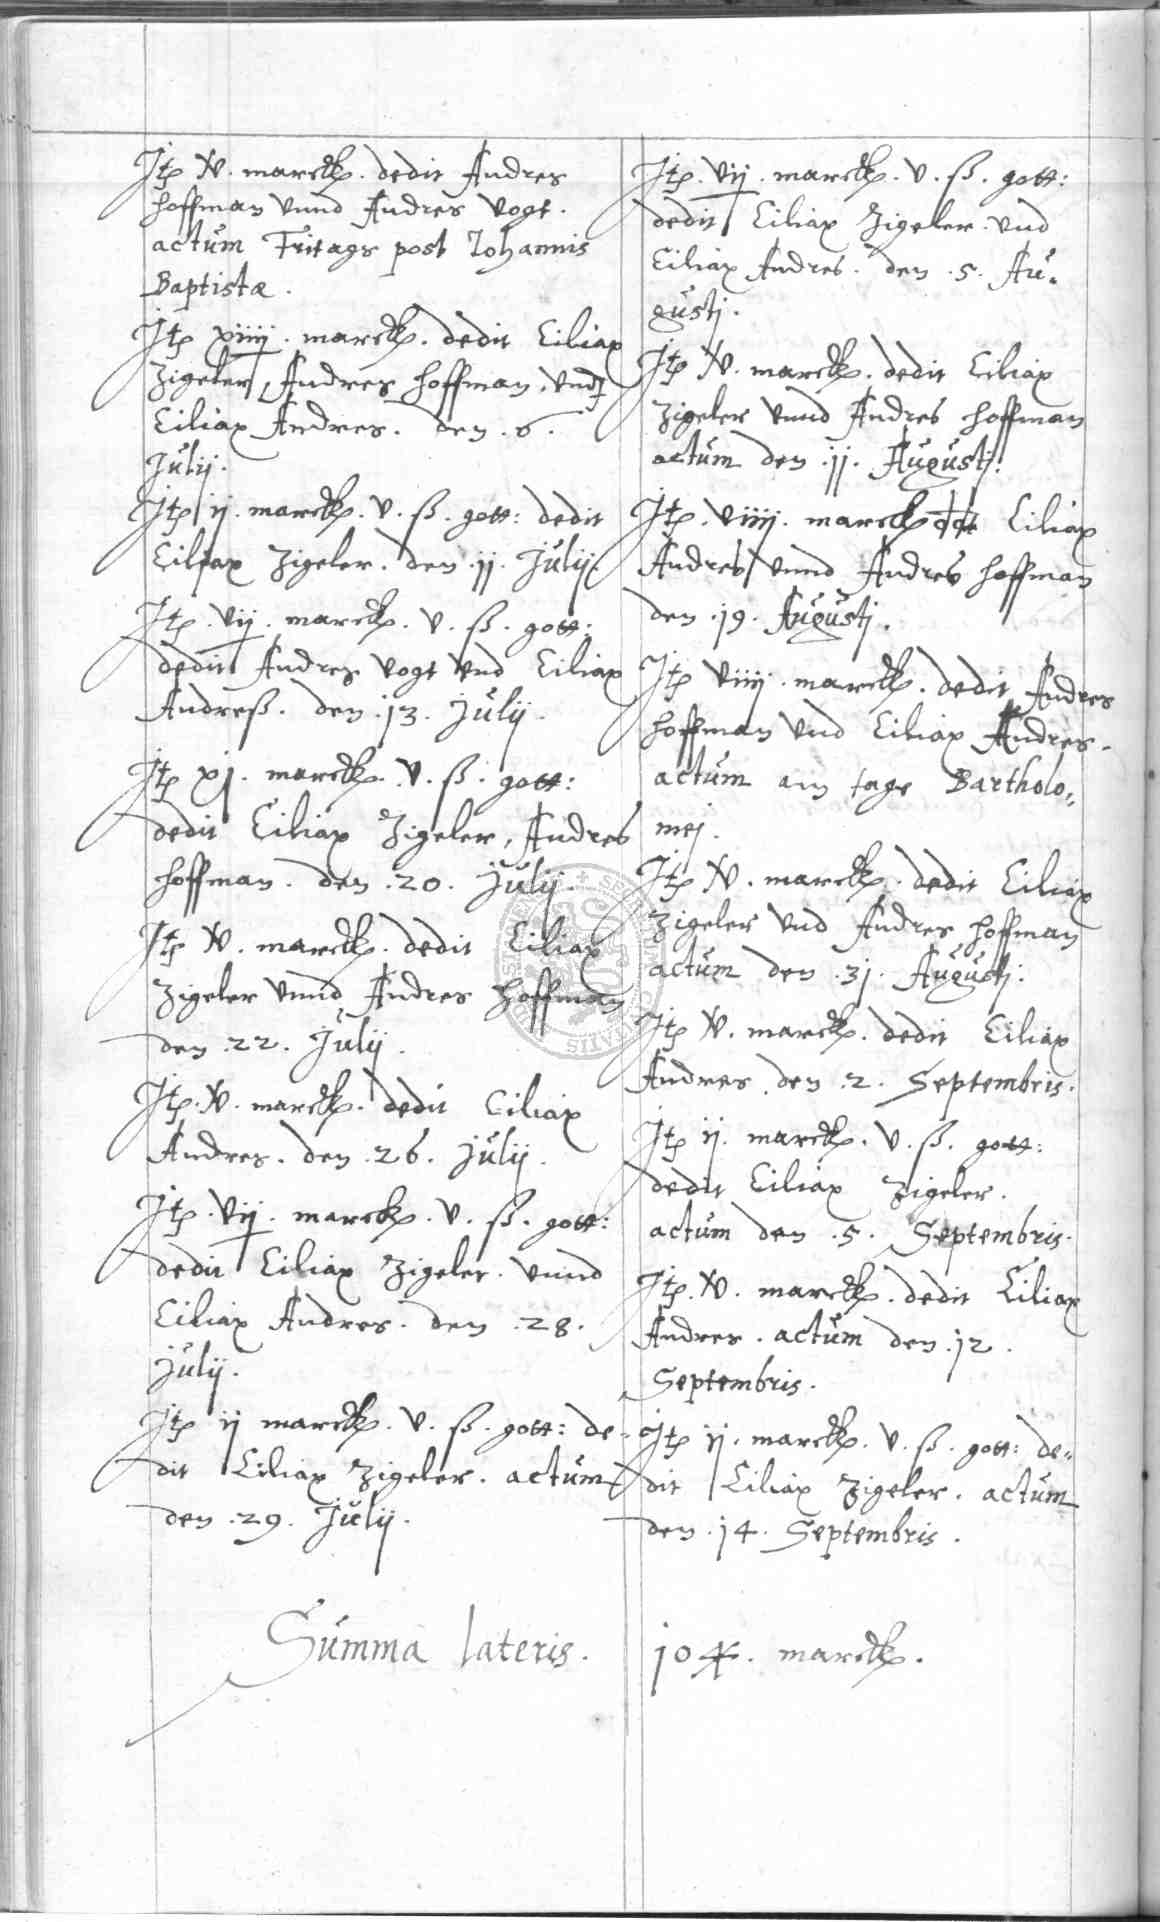 Itp v. marck. dedit Andres
Hoffman vnnd Andres Vogt.
actum Fritags post Johannis
Baptistæ.
Itp xiiij. marck. dedit Ciliax
Zigeler, Andres Hoffman, vnd
Ciliax Andres. den .6.
Julij.
Itp ij. marck. v. ß. gott: dedit
Ciliax Zigeler. den .jj. Julij.
Itp. vij. marck. v. ß. gott:
dedit Andres Vogt vnd Ciliax
Andreß. den .j3. Julij.
Itp xj. marck. v. ß. gott:
dedit Ciliax Zigeler, Andres
Hoffman. den .20. Julij.
Itp v. marck. dedit Ciliax
Zigeler vnnd Andres Hoffman
den .22. Julij.
Itp. v. marck. dedit Ciliax
Andres. den .26. Julij.
Itp. vij. marck. v. ß. gott:
dedit Ciliax Zigeler. vnnd
Ciliax Andres. den .28.
Julij.
Itp ij marck. v. ß. gott: de-
dit Ciliax Zigeler. actum
den .29. Julij.
Itp. vij. marck. v. ß. gott:
dedit Ciliax Zigeler. vnd
Ciliax Andres. den .5. Au-
gustj.
Itp v. marck. dedit Ciliax
Zigeler vnnd Andres Hoffman
actum den .jj. Augustj.
Itp. viiij. marck ddt Ciliax
Andres vnnd Andres Hoffman
den .j9. Augustj.
Itp viiij. marck. dedit Andres
Hoffman vnd Ciliax Andres.
actum am tage Bartholo-
mej.
Itp v. marck. dedit Ciliax
Zigeler vnd Andres Hoffman
actum den .3j. Augustj.
Itp v. marck. dedit Ciliax
Andres den .2. Septembris.
Itp ij. marck. v. ß. gott:
dedit Ciliax Zigeler.
actum den .5. Septembris.
Itp. v. marck. dedit Ciliax
Andres. actum den .j2.
Septembris.
Itp ij. marck. v. ß. gott: de-
dit Ciliax Zigeler. actum
den .j4. Septembris.
Summa lateris. j04. marck.